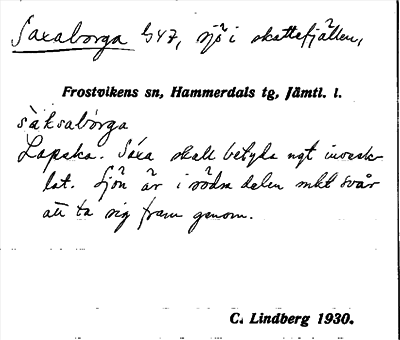 Saxaborga G47, sjö i skattefjällen,
Frostvikens sn, Hammerdals tg, Jämtl. l.
sàksabórga
Lapska. Saxa skall betyda ngt inveck-
lat. Sjön är i södra delen mkt svår
att ta sig fram genom.
C. Lindberg 1930.